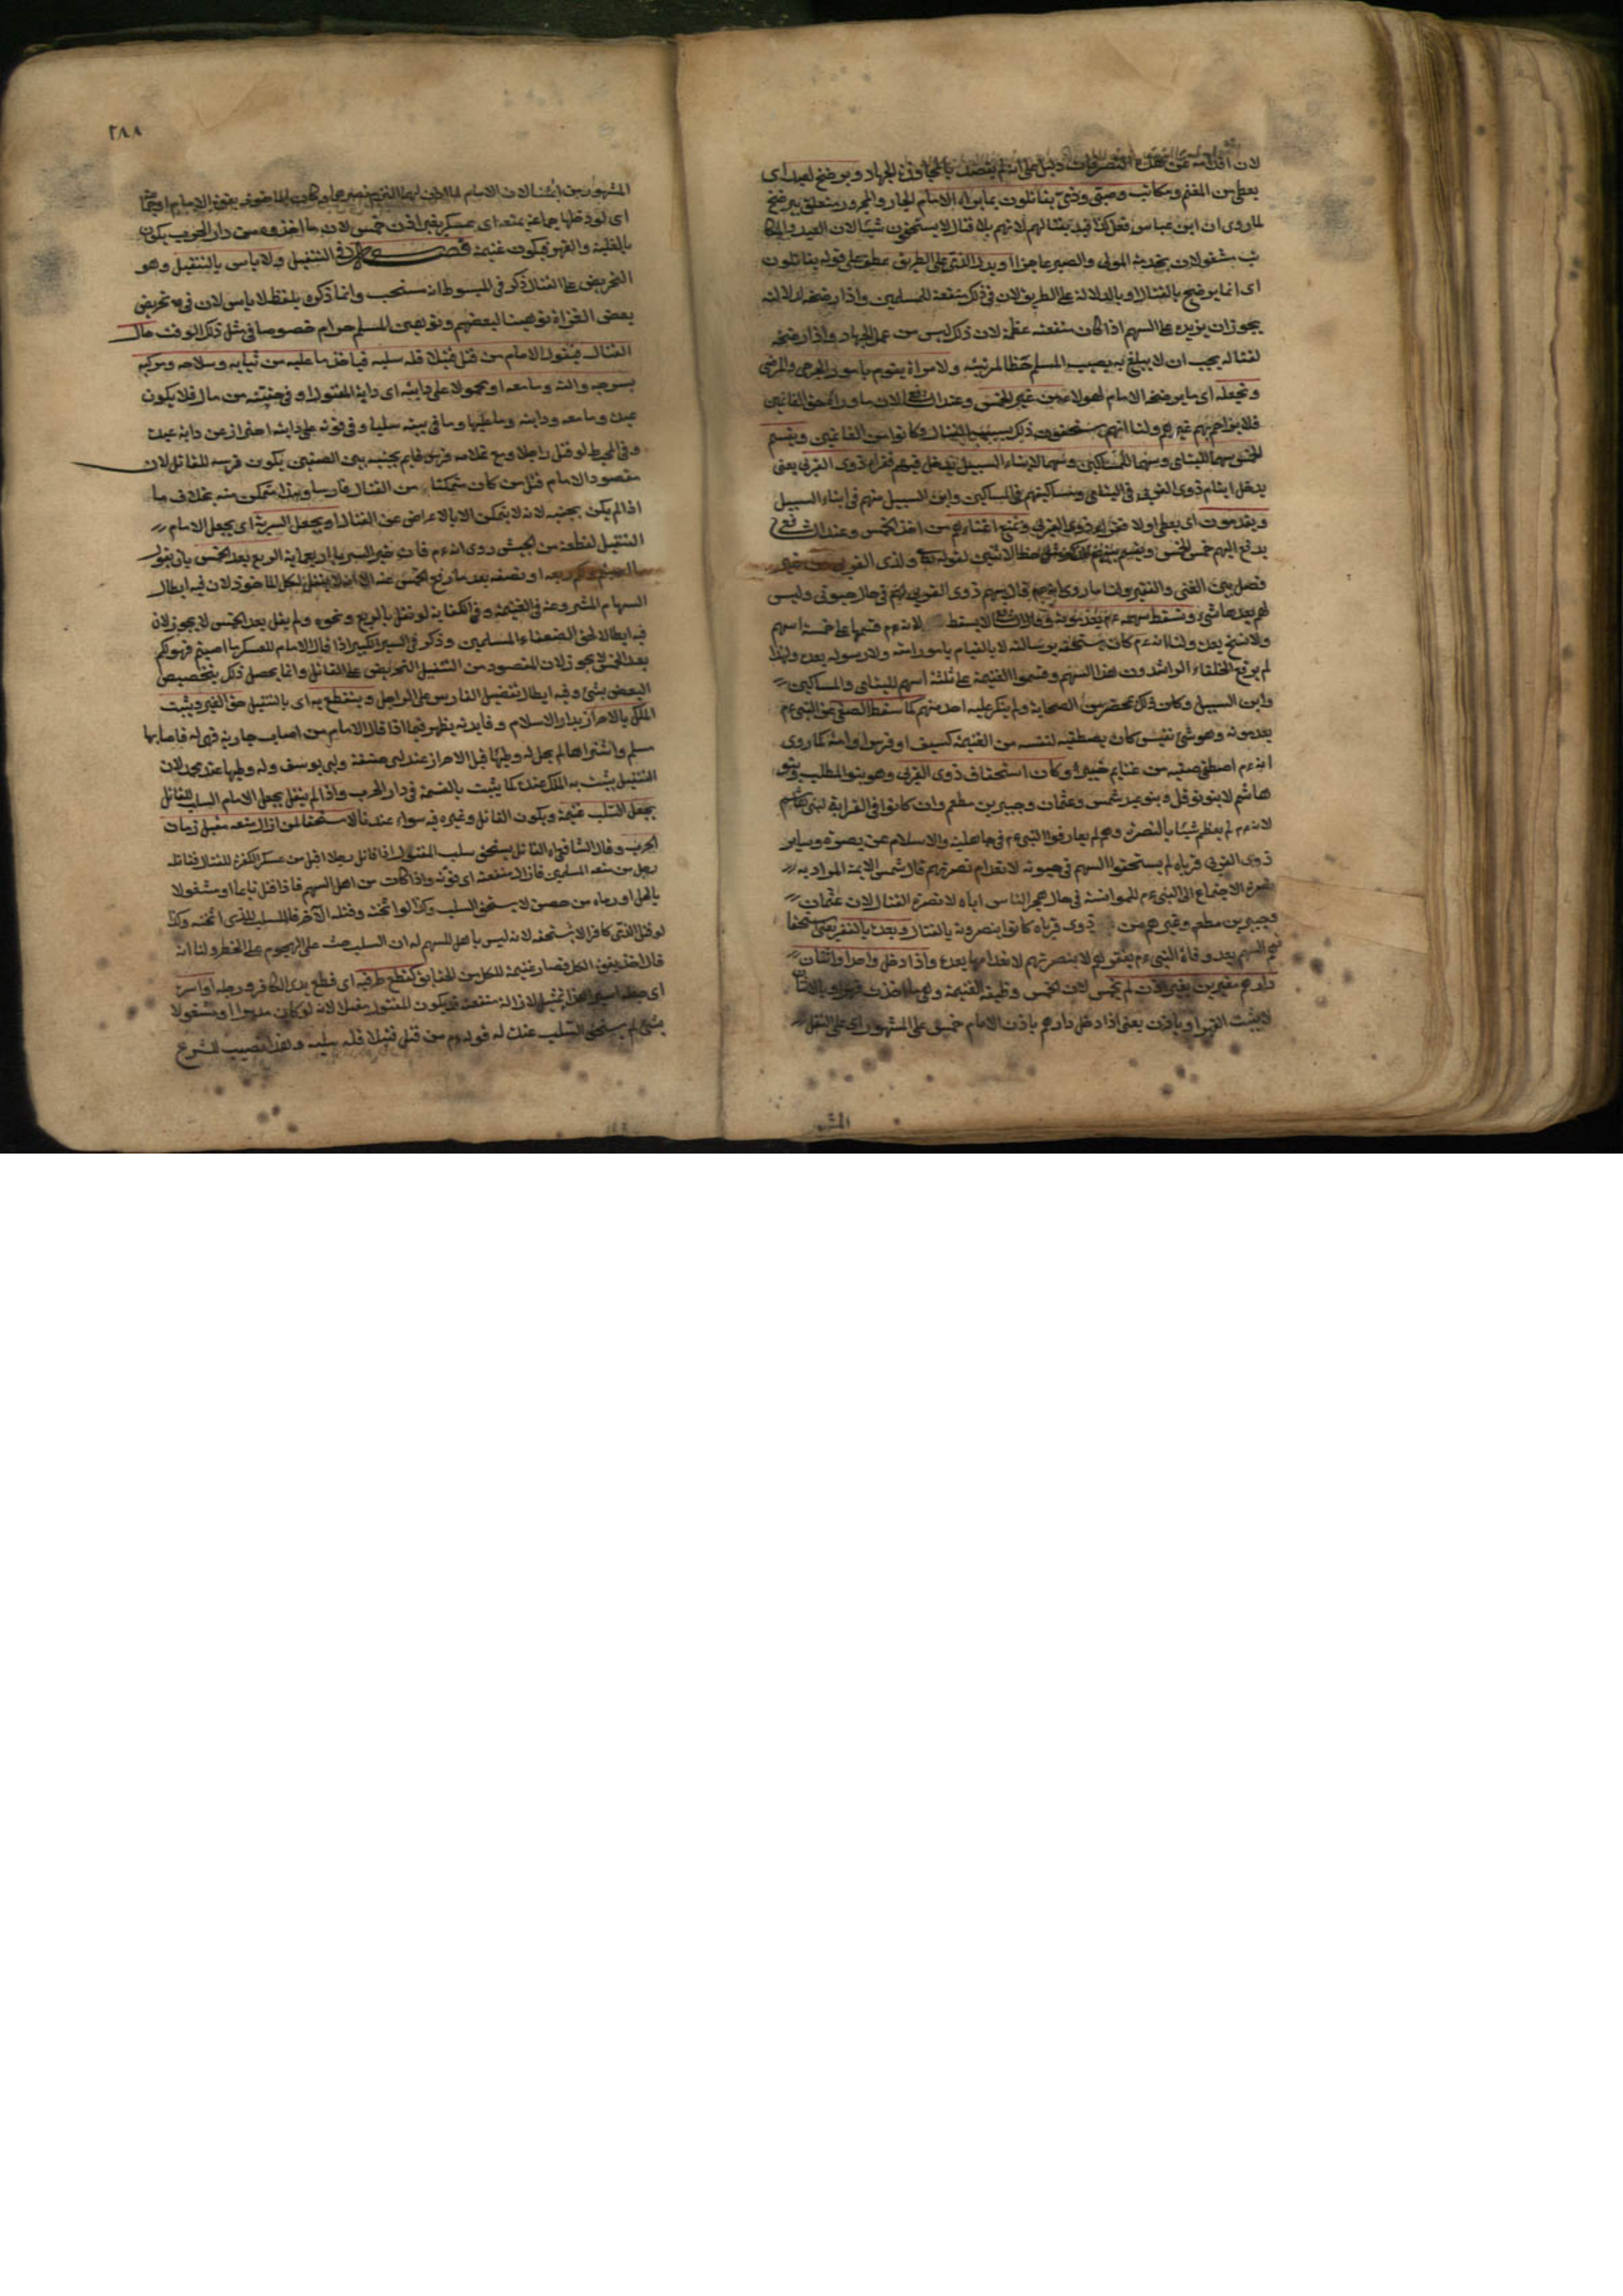 لان اقدامه عن هذه التصرفات دليل على انه لم يقصد بالمجاوزة الجهاد ويرضخ لعبد اى
يعطى من المغنم ومكاتب وصبى وذمى يقاتلون بما يراه الامام الجار والمجرور متعلق بيرضخ
لما روى ان ابن عباس فعل كذا قيد بقتالهم لانهم بلا قتال لا يستحقون شيئا لان العبد والمكا
تب مشغولان بخدمة المولى والصبى عاجز او يدل الذمى على الطريق عطف على قوله يقاتلون
اى انما يرضخ بالقتال او بالدلالة على الطريق لان فى ذلك منفعة للمسلمين واذا رضخه لدلالته
يجوز ان يزيده على السهم اذا كان منفعته عظمة لان ذلك ليس من عمل الجهاد واذا رضخه
لقتاله يجب ان لا يبلغ به نصيب المسلم حظا لمرتبته ولامراة يقوم بامور الجرحى والمرضى
ونجعله اى ما يرضخه الامام لهولاء من غير الخمس وعند الشافعى لا لان ما وراه حق الغانمين
فلا يزاحمهم غيرهم ولنا انهم يستحقون ذلك بسبب القتال وكانوا من الغانمين ويقسم
الخمس سهما لليتامى وسهما للمساكين وسهما لابناء السبيل يدخل فيهم فقراء ذوى القربى يعنى
يدخل ايتام ذوى القربى فى اليتامى ومساكينهم فى المساكين وابن السبيل منهم فى ابناء السبيل
ويقدمون اى يعطى اولا فقراء ذوى القربى ونمنع اغنياءهم من اخذ الخمس وعند الشافعى
يدفع اليهم خمس الخمس ويقسم بينهم للذكر مثل حظ الانثيين لقوله تع ولذى القربى من غير
فصل بين الغنى والفقير ولنا ما روى قال سهم ذوى القربى لهم فى حال حيوتى وليس
لهم بعد مماتى شىء ونسقط سهمه عم بعد موته وقال الشافعى لا يسقط لانه عم قسمها على خمسة اسهم
ولا نسخ بعده ولنا انه عم كان يستحقه برسالته لا بالقيام بامور امته ولا رسول بعده ولهذا
لم يرفع الخلفاء الراشدون هذا السهم وقسموا الغنيمة على ثلثة اسهم لليتامى والمساكين
وابن السبيل وكان ذلك بمحضر من الصحابة ولم ينكر عليه احد منهم كما سقط الصفى عن النبى عم
بعد موته وهو شىء نفيس كان يصطفيه لنفسه من الغنيمة كسيف او فرس او امة كما روى
انه عم اصطفى صفية من غنايم خيبر وكان استحقاق ذوى القربى وهو بنو المطلب وبنو
هاشم لا بنو نوفل وبنو عبد شمس وعثمان وجبير بن مطعم وان كانوا فى القرابة لبنى هاشم
لانه عم لم يعطهم شيئا بالنصرة وهم لم يعارفوا النبى عم فى جاهلية والاسلام عن نصرة وساير
ذوى القربى قرباه لم يستحقوا السهم فى حيوته لانعدام نصرتهم قال شمس الايمة المراد به
نصرة الاجتماع الى النبى عم للموانسة فى حال هجر الناس اياه لا نصرة القتال لان عثمان
وجبير بن مطعم وغيرهم من ذوى قرباه كانوا ينصرونه بالقتال وبعده بالفقر يعنى يستحقا
السهم بعد وفاة النبى عم بفقرهم لا بنصرتهم لانعدامها بعده واذا دخل واحد او اثنان
دارهم مغيرين بغير اذن لم يخمس لان الخمس وظيفة الغنيمة وهى ما اخذت قهرا وبالاثنان
لا يثبت القهر او باذن يعنى اذا دخل دارهم باذن الامام خمس على المشهور اى على النقل
المشهور
٢٨٨
المشهور من ائمتنا لان الامام لما اذن لهما التزم نصرهما وكان الماخوذ بقوة الامام
اى لو دخلها جماعة بمنعة اى بعسكر بغير اذن خمس لان ما اخذوه من دار الحرب يكون
بالغلبة والقهر فيكون غنيمة فصل فى التنفيل ولا باس بالتنفيل وهو
التحريض على القتال ذكر فى المبسوط انه مستحب وانما ذكره بلفظ لا باس لان فيه تحريض
بعض الغزاة توهينا لبعضهم وتوهين المسلم حرام خصوصا فى مثل ذلك الوقت حال
القتال فيقول الامام من قتل قتيلا فله سلبه فياخذ ما عليه من ثيابه وسلاحه ومركبه
بسرجه والته وما معه او محمولا على دابته اى دابة المقتول او فى حقيبته من مال فلا يكون
عبده وما معه ودابته وما عليها وما فى بيته سلبا وفى قوله على دابته احتراز عن دابة عبده
وفى المحيط لو قتل راجلا ومع غلامه فرس قايم بجنبه بين الصفين يكون فرسه للقاتل لان
مقصود الامام قتل من كان متمكنا من القتال فارسا وهذا متمكن منه بخلاف ما
اذا لم يكن بجنبه لانه لا يتمكن الا بالاعراض عن القتال او يجعل السرية اى يجعل الامام
التنفيل لقطعة من الجيش روى انه عم بعد الخمس بان يقول
ربعه او نصفه بعد ما رفع الخمس عنه لكل الماخوذ لان فيه ابطال
السهام المشروعة فى الغنيمة وفى الكفاية لو نفل بالربع ونحوه ولم يقل بعد الخمس لا يجوز لان
فيه ابطالا لحق الضعفاء المسلمين وذكر فى السير الكبير اذا قال الامام للعسكر ما اصبتم فهو لكم
بعد الخمس لا يجوز لان المقصود من التنفيل التحريض على القتال وانما يحصل ذلك بتخصيص
البعض بشىء وفيه ابطال تفضيل الفارس على الراجل وينقطع به اى بالتنفيل حق الغير ويثبت
الملك بالاحراز بدار الاسلام وفايدته يظهر فيما اذا قال الامام من اصاب جارية فهى له فاصابها
مسلم واستبراها لم يحل له وطيها قبل الاحراز عند ابى حنيفة وابى يوسف وله وطيها عند محمد لان
التنفيل يثبت به الملك عنده كما يثبت بالقسمة فى دار الحرب واذا لم ينفل يجعل الامام السلب للقاتل
يجعل السلب غنيمة ويكون القاتل وغيره فيه سواء عندنا
الحرب وقال الشافعى القاتل يستحق سلب المقتول اذا قاتل رجلا اقبل من عسكر الكفرة للقتال فقاتله
رجل من منعة المسلمين فازال منفعته اى قوته واذا كان من اهل السهم فاذا قتل نايما او مشغولا
باكل او رماه من حصن لا يستحق السلب وكذا لو اثخنه وقتله الآخر فالسلب للذى اثخنه وكذا
لو قتل الذمى كافرا لا يستحقه لانه ليس باهل للسهم له ان السلب حث على الهجوم على الخطر ولنا انه
فال اخذ بقوة الكل فصار غنيمة للكل من الحقايق كقطع طرفيه اى قطع يدى الكافر ورجله او اسره
اى جعله اسيرا هذا تمثيل لازالة منفعته فيكون للمقتول مقبلا لانه لو كان مدبرا او مشغولا
بشىء لم يستحق السلب عنده له قوله عم من قتل قتيلا فله سلبه وهذا نصيب الشرع